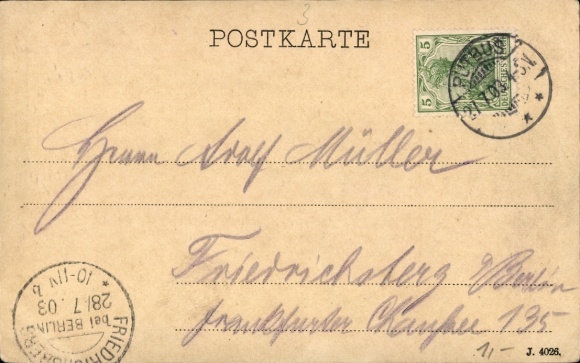 3
POSTKARTE
5 5
PUTBUS
27.7.03. 4-5N.
Herrn Adolf Müller
Friedrichsberg b/Berlin
Frankfurter Chaussee 135
FRIEDRICHSBERG
bei BERLIN
28.7.03
10-11V.
1,-
J. 4026.